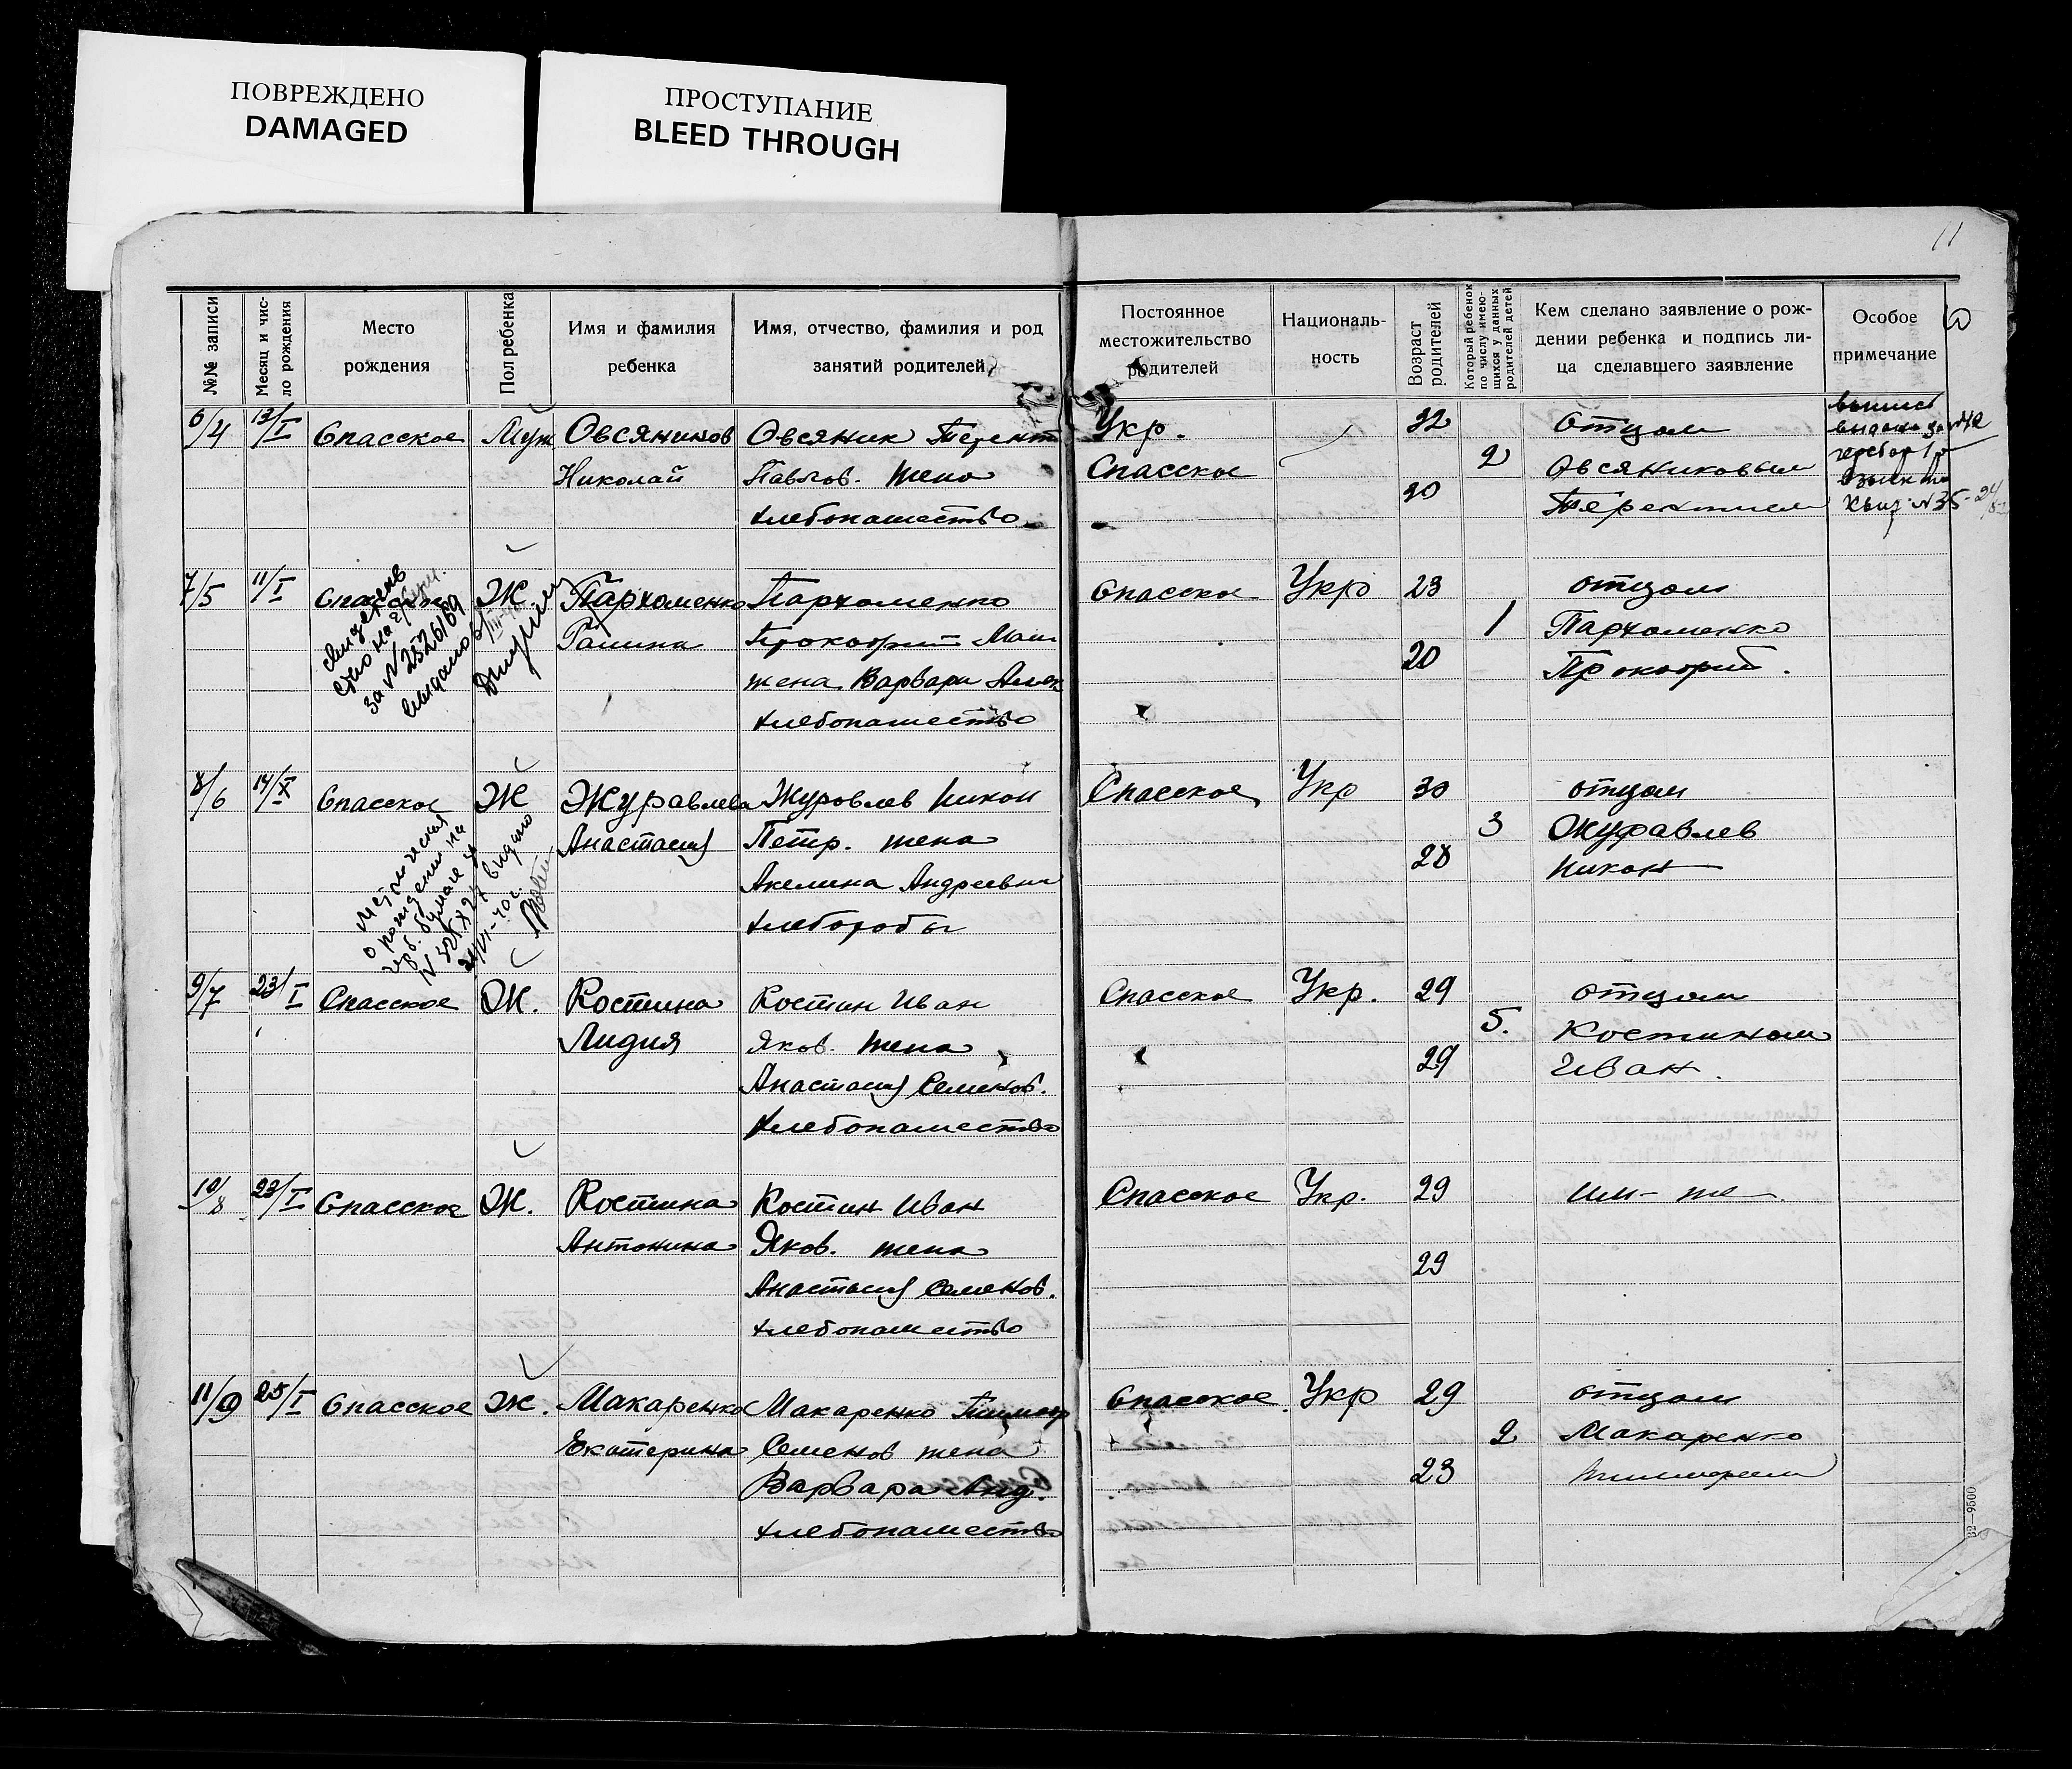 ПОВРЕЖДЕНО
DAMAGED
ПРОСТУПАНИЕ
BLEED THROUGH
11
№№ записи
Месяц и число рождения
Место рождения
Пол ребенка
Имя и фамилия ребенка
Имя, отчество, фамилия и род занятий родителей
Постоянное местожительство родителей
Националь-
ность
Возраст родителей
Который ребенок по числу имею-
щихся у данных родителей детей
Кем сделано заявление о рож-
дении ребенка и подпись ли-
ца сделавшего заявление
Особое примечание
6/4 13/I Спасское Муж Овсяников Овсяник Терент
Николай Павлов. жена
хлебопашество
Укр. 32 отцом
Спасское 2 Овсяниковым
20 Терентием
выпись
выдана за №
гербор 1р
взыск
Квит №35
7/5 11/I Спасское Ж Пархоменко Пархоменко
Галина Прокофий Мат
жена Варвара Алек
хлебопашество
Свидетель
ство на
за №2526169
выдано
Спасское Укр 23 отцом
1 Пархоменко
20 Прокофий.
8/6 14/X Спасское Ж Журавлева Журовлев Никон
Анастасия Петр. жена
Акелина Андреевна
хлеборобы
о рождении на
герб. бумаге
выдано
Спасское Укр 30 отцом
3 Журавлев
28 Никон
9/7 23/I Спасское Ж. Костина Костин Иван
Лидия Яков. жена
Анастасия Семенов.
хлебопашество
Спасское Укр. 29 отцом
5. Костином
29 Иван.
10/8 23/I Спасское Ж. Костина Костин Иван
Антонина Яков. жена
Анастасия Семенов.
хлебопашество
Спасское Укр. 29 им-же
29
11/9 25/I Спасское Ж. Макаренко Макаренко Тимоф
Екатерина Семенов жена
Варвара Анд.
хлебопашество
Спасское. Укр 29 отцом
2 Макаренко
23 Тимофеем
32—9500